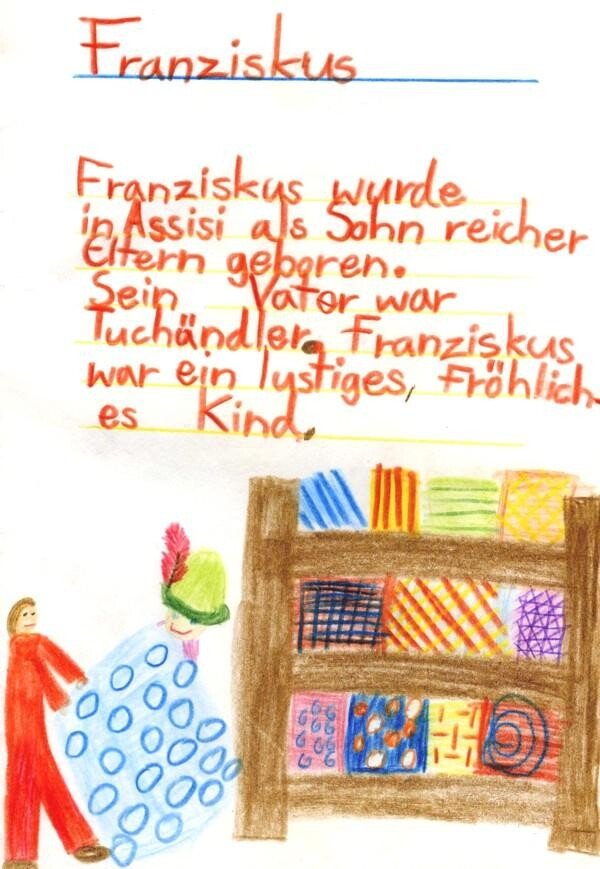 Franziskus
Franziskus wurde
in Assisi als Sohn reicher
Eltern geboren.
Sein Vater war
Tuchändler. Franziskus
war ein lustiges, fröhlich-
es Kind.